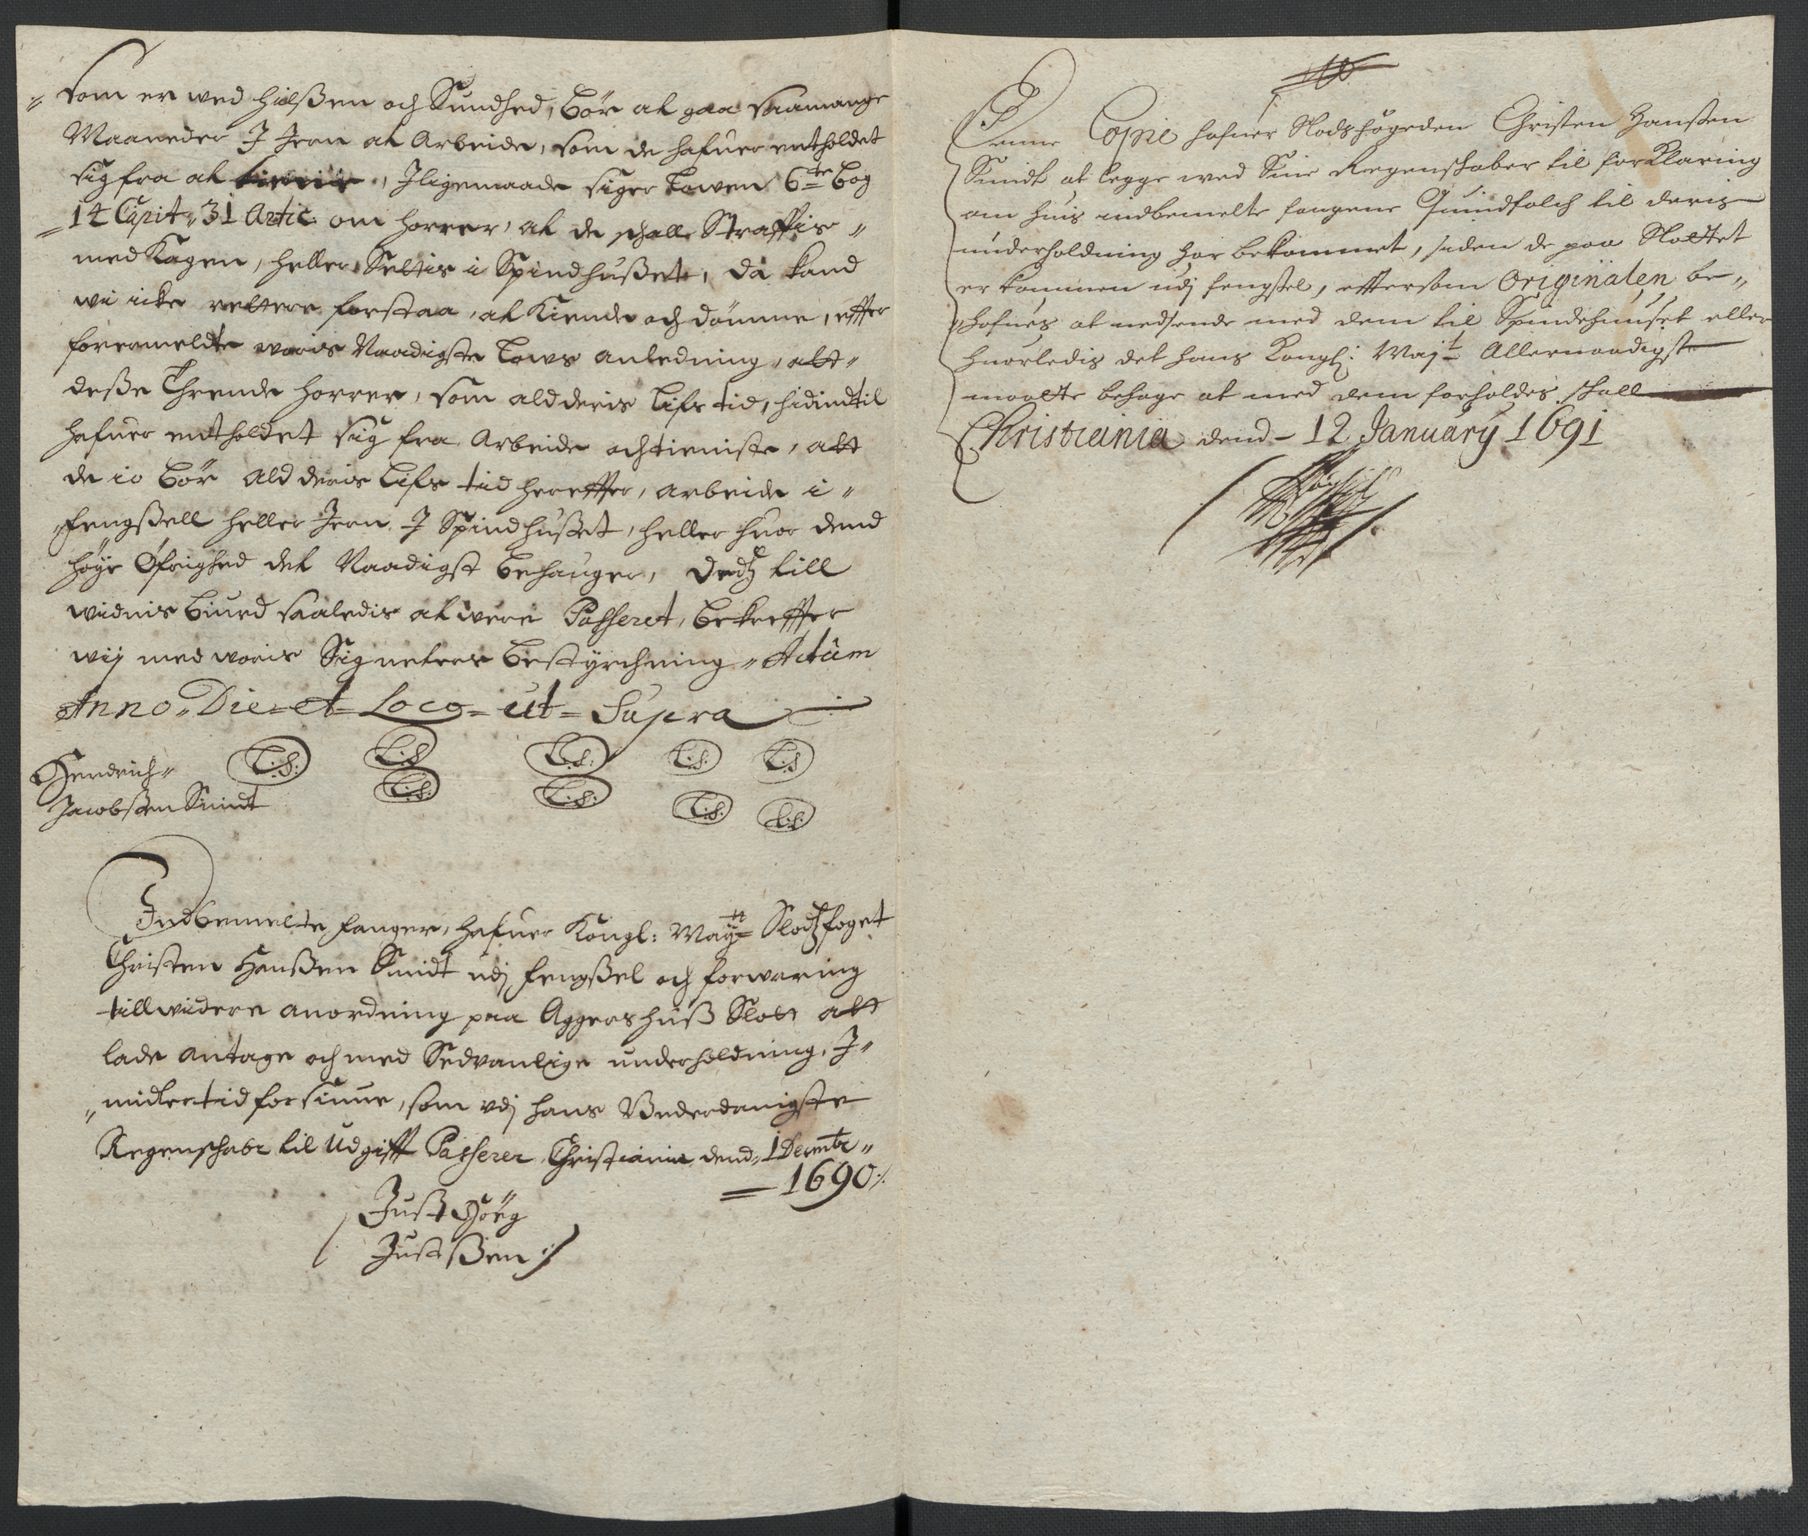 som er wed helßen och Sundhed, bør at gaa saamange
Maaneder I Jern at Arbeide, som de hafuer entholdet
sig fra at tienne, Jligemaade siger Lowen 6te bog
14 Capit: 31 Artic om horrer, at de schall Straffis
med Kagen, heller Settis i Spindhußet, da kand
wi icke rettere forstaa, at Kiende och dømme, effter
forermeldte woris Naadigste Lows anledning, att
deße Thrende horrer, som ald deris Lifs tid, hidindtil
hafuer entholdet sig fra Arbeide och tieniste, att
de io bør ald deris Lifs tid hereffter, arbeide i
fengßell heller Jern I Spindhußet, heller huor dend
høye Øfrighed det Naadigst behauger, Dedtz till
widnis biurd saaledis at were Passeret, bekreffter
wij med woris Signeters bestyrchning, Actum
Anno Die et Loco ut Supra
Hendrich L:S: L:S L:S: L:S: L:S
Jacobßen Smidt L:S: L:S: L:S: L:S:
Indbemelte fanger, hafuer Kongl: Maytt Slodtzfoget
Christen Hanßen Smidt udj fengßel och forwaring
till widere anordning paa Aggershuß Slott att
lade antage och med Sedvanlige underholdning, I
midlertid forsiune, som vdj hans Vnderdanigste
Regenschabe til Udgifft Passerer Christiania dend 1 Decembr
1690
Just Høeg
Justßen
Denne Copie hafuer Slodsfogden Christen Hanßen
Smidt at legge wed Sine Regenskaber til forklaring
om huis indbemelte fangene Quindfolch til deris
underholdning har bekommet, siden de paa Slottet
er kommen udj fengsel, eftersom Originalen be-
hofues at nedsende med dem til Spindehuuset eller
huorledis det hans Kongl: Mayt Allernaadigst
maatte behage at med dem forholdes skall
Christiania dend 12 January 1691